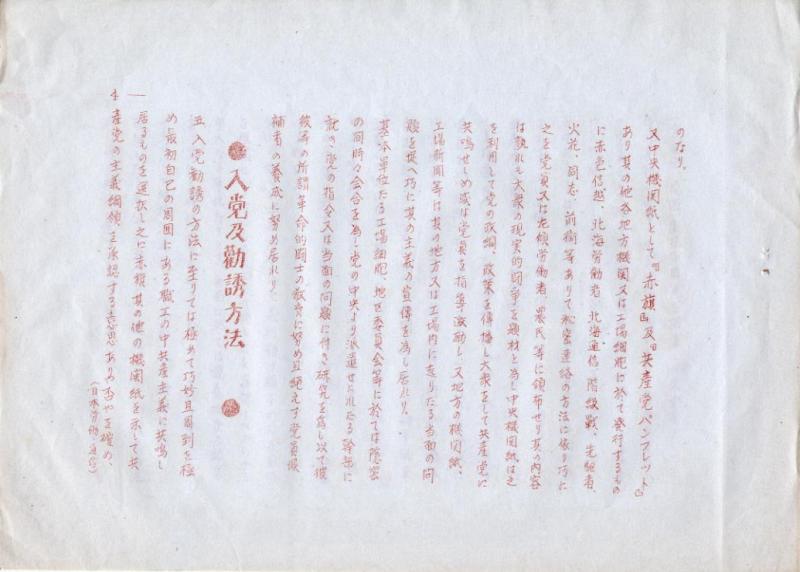 のなり、
又中央機関紙として『赤旗』及『共産党パンフレット』
あり其の他各地方機関又は工場細胞に於て発行するもの
に赤色信越、北海労働者、北海通信、階級戦、先駆者、
火花、同志、前衛等ありて秘密連絡の方法に依り巧に
之を党員又は左傾労働者、農民等に頒布せり其の内容
は孰れも大衆の現実的闘争を題材と為し中央機関紙は之
を利用して党の政綱、政策を伝播し大衆をして共産党に
共鳴せしめ或は党員を指導激励し又地方の機関紙、
工場新聞等は其の地方又は工場内に起りたる当面の問
題を捉へ巧に其の主義の宣伝を為し居れり、
基本単位たる工場細胞、地区委員会等に於ては隠密
の間時々会合を為し党の中央より派遣せられたる幹部に
就き党の指令又は当面の問題に付き研究を為し以て彼
等の所謂革命的闘士の教育に努め且絶えず党員候
補者の養成に努め居れり、
入党及勧誘方法
五 入党勧誘の方法に至りては極めて巧妙且周到を極
め最初自己の周囲にある職工の中共産主義に共鳴し
居るものを選択し之に赤旗其の他の機関紙を示して共
産党の主義綱領を承認する意思ありや否やを確め、
4